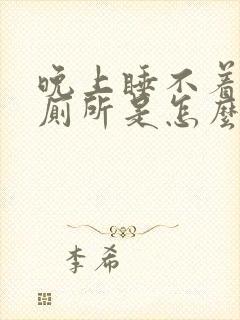 晚上睡不着
厕所是怎麽
李希